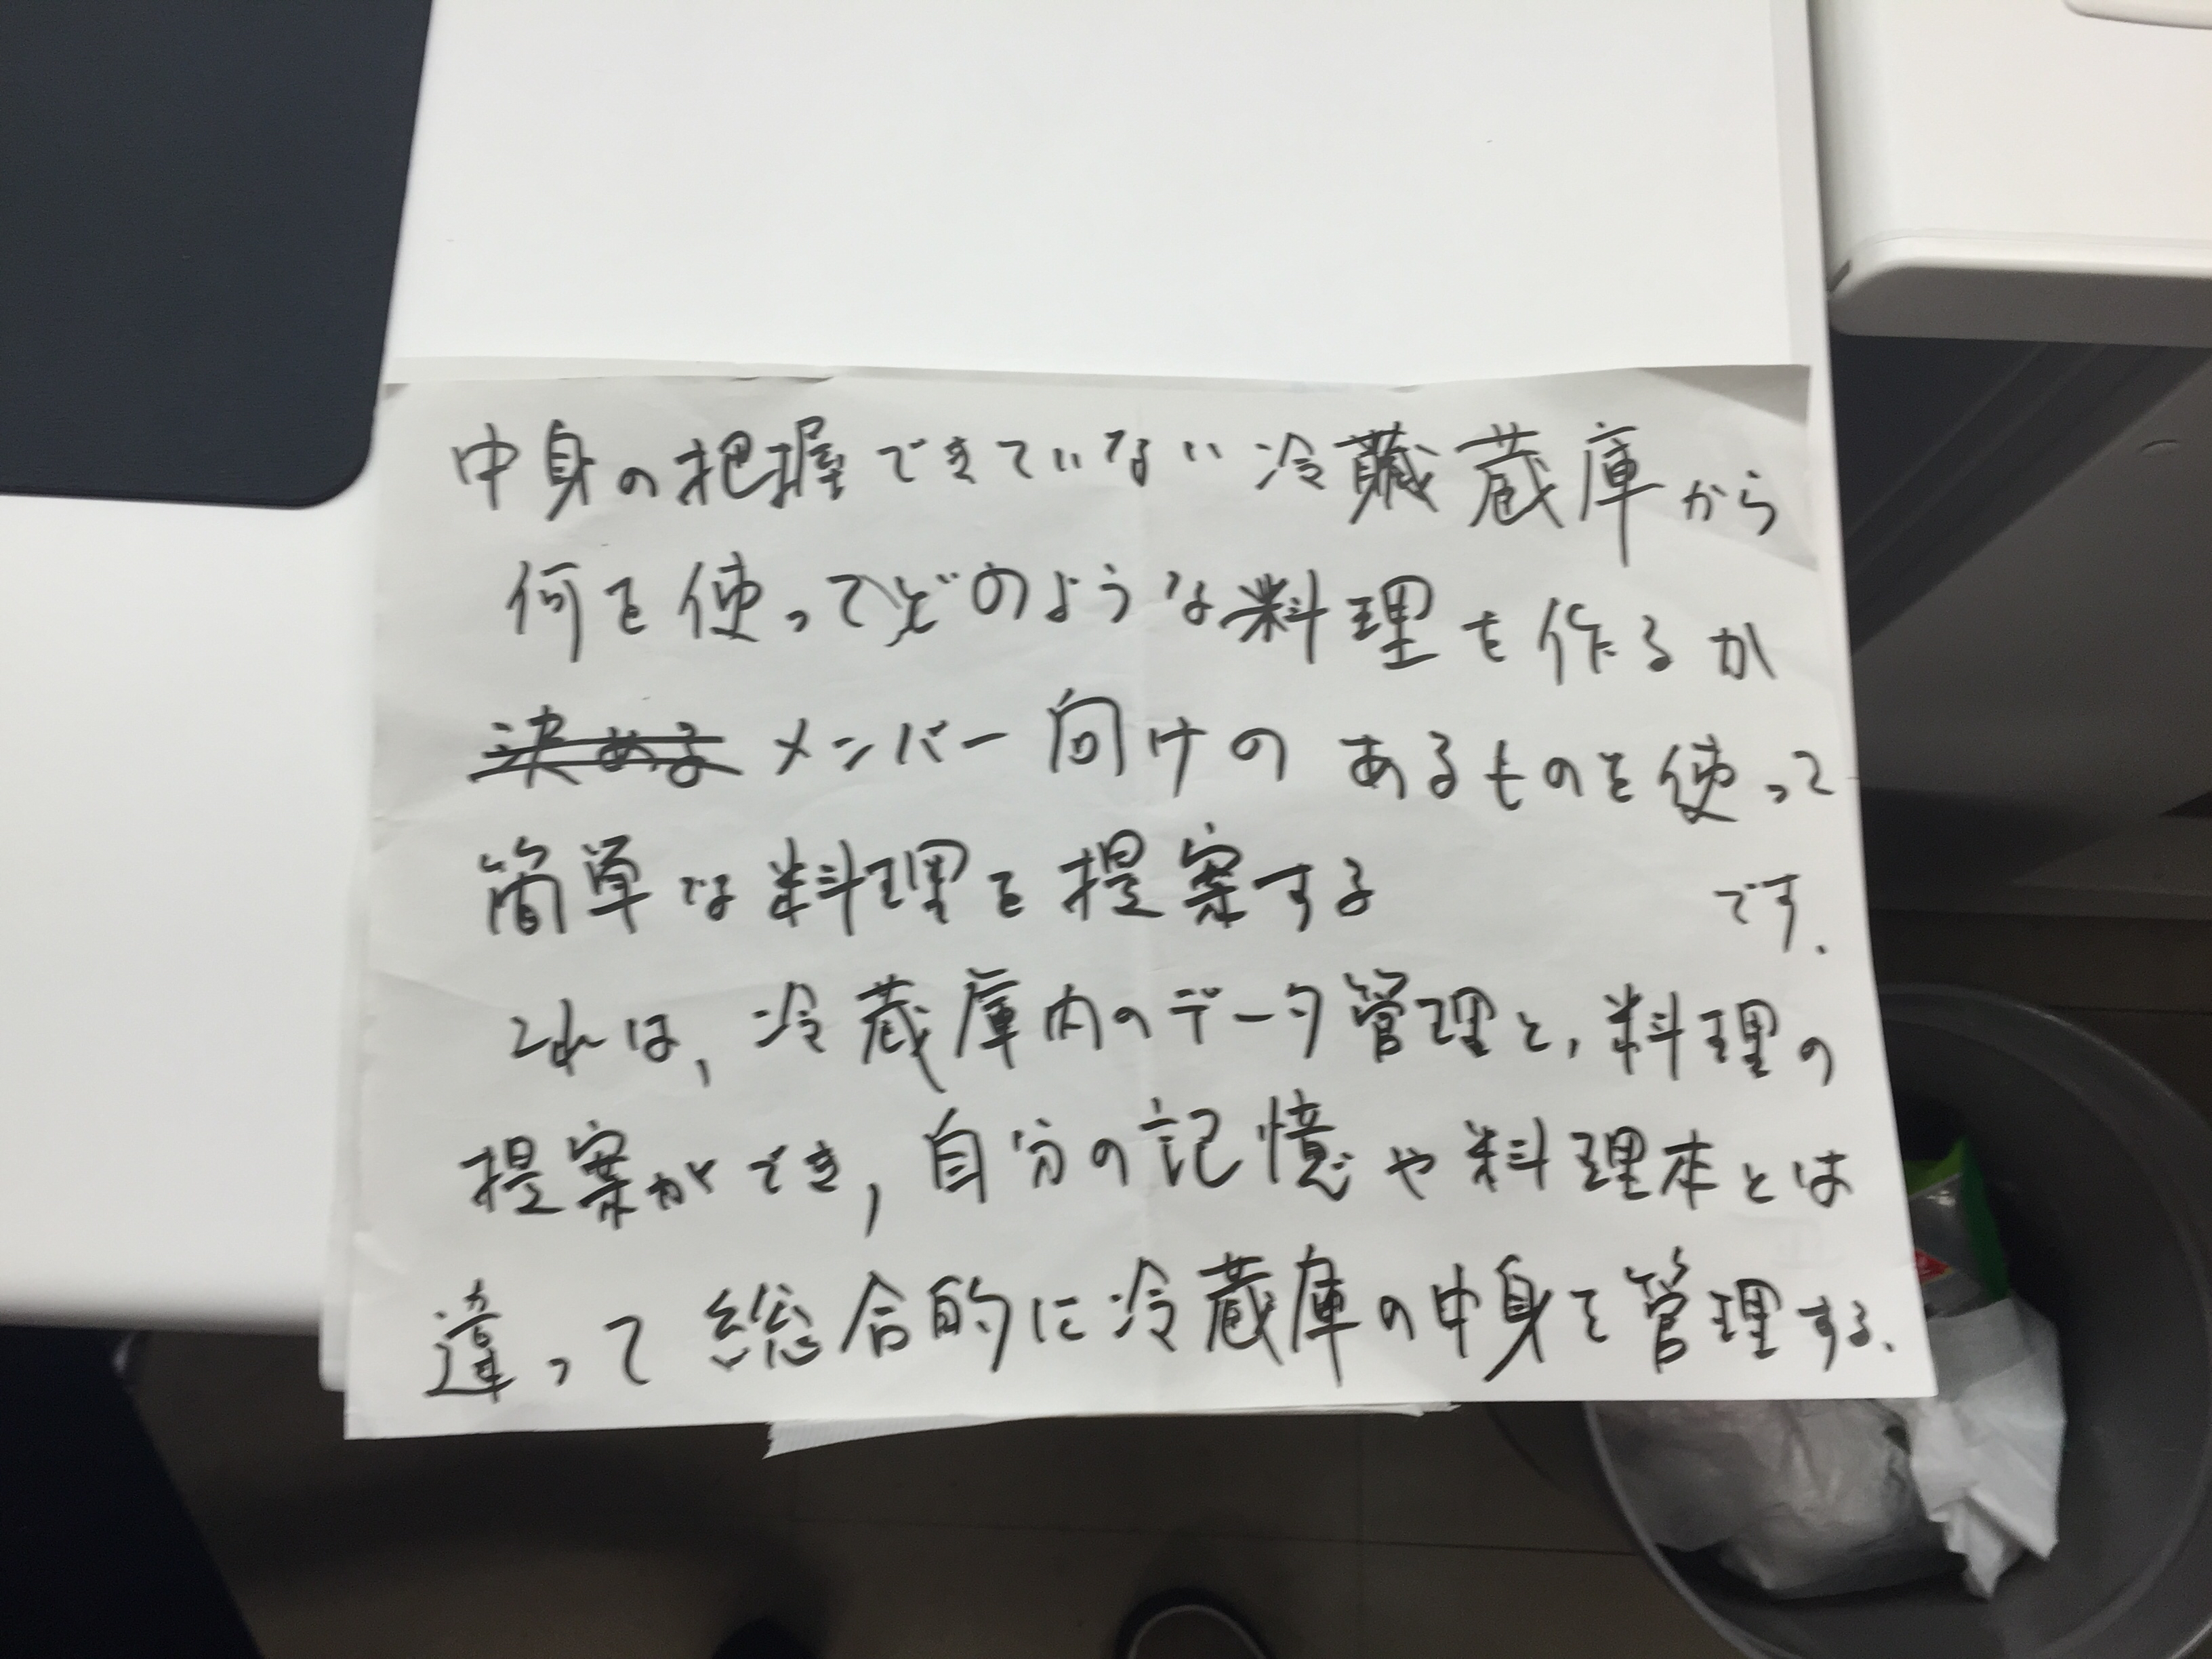 中身の把握できていない冷蔵庫から
何を使ってどのような料理を作るか
メンバー向けのあるものを使って
簡単な料理を提案する です.
これは, 冷蔵庫内のデータ管理と, 料理の
提案ができ, 自分の記憶や料理本とは
違って総合的に冷蔵庫の中身を管理する.